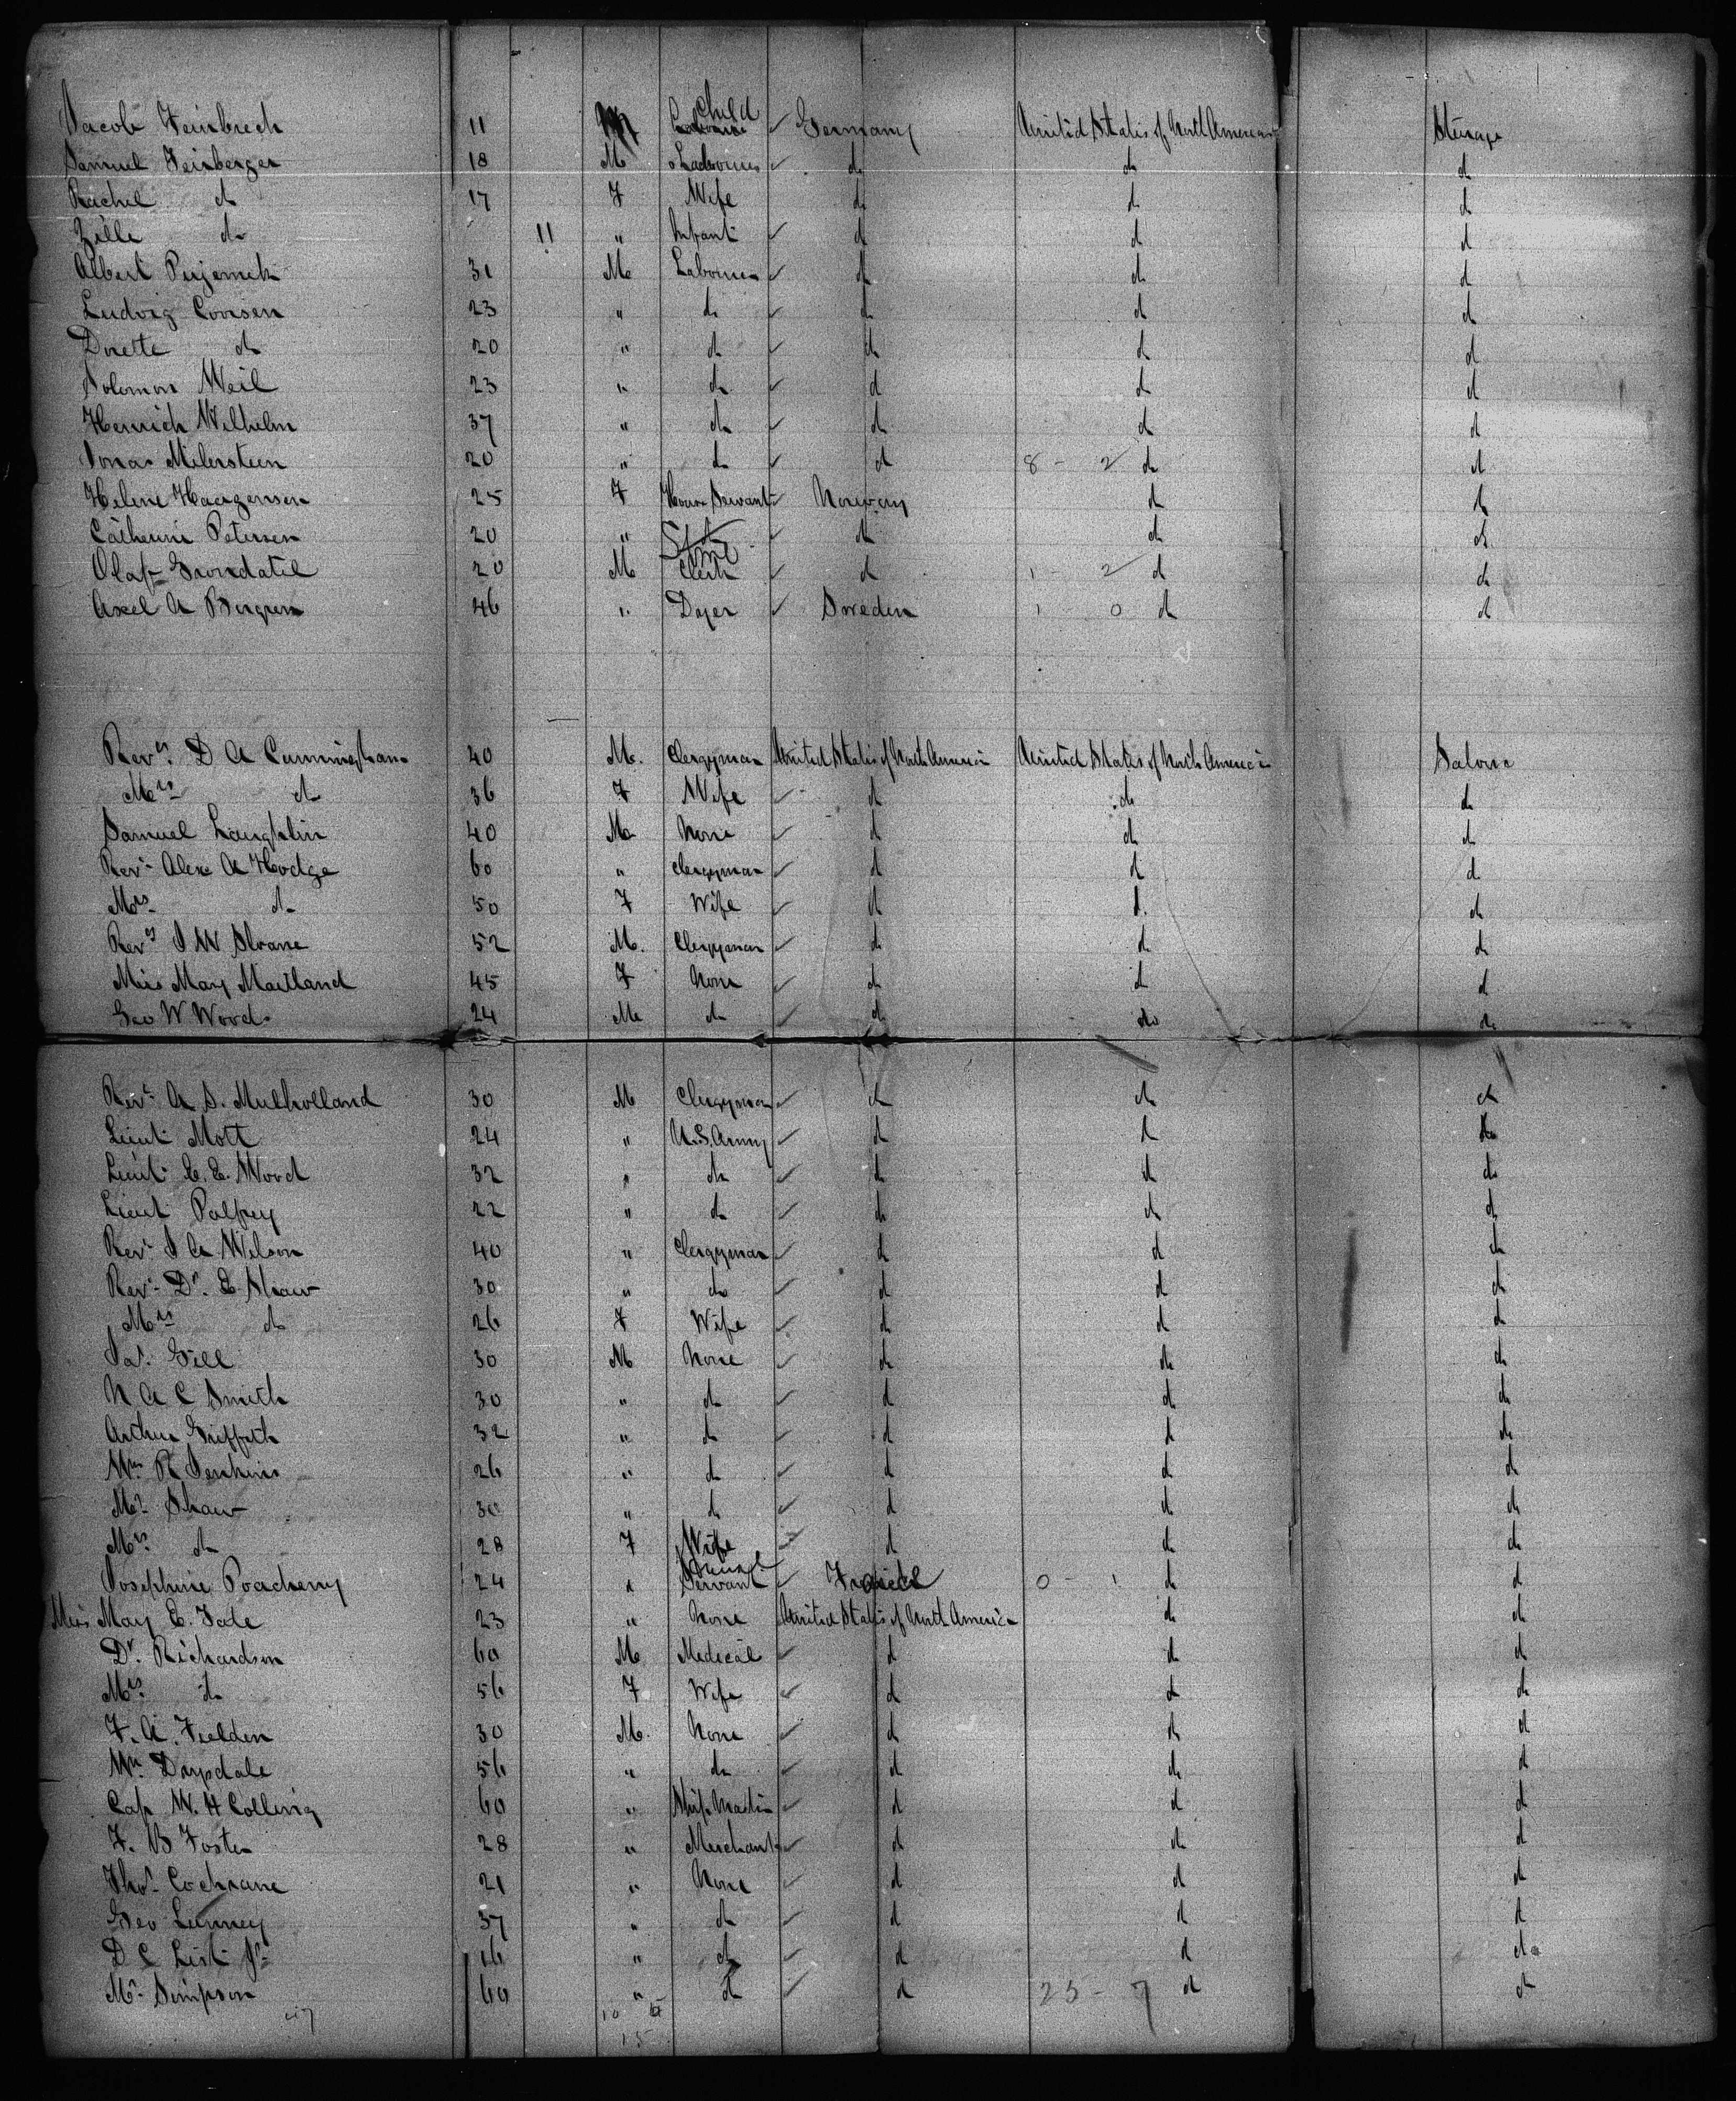 Jacob Feinbrech 11 M Child Germany United States of North America Steerage
Samuel Feinberger 18 M Labourer do do do
Rachel do 17 F Wife do do do
Zille do 11 " Infant do do do
Albert 31 M Labourer do do do
Ludvig Coorsen 23 " do do do do
Dorette do 20 " do do do do
Solomon Weil 23 " do do do do
Henrich Wilhelm 37 " do do do do
Jonas Milerstein 20 " do do 8 - 2 do do
Helene Haagensen 25 F House Servant Norway do do
Catherine Petersen 20 " do do do
Olaf 20 M Clerk do 1 - 2 do do
Axel A Bergren 46 " Dyer Sweden 1 - 0 do do
Revd D A Cunningham 40 M. Clergyman United States of North America United States of North America Saloon
Mrs do 36 F Wife do do do
Samuel Laughlin 40 M None do do do
Revd Alex A Hodge 60 " Clergyman do do do
Mrs do 50 F Wife do do do
Revd J W Sloane 52 M. Clergyman do do do
Miss Mary Maitland 45 F None do do do
Geo W Woods 24 M do do do do
Revd A S. Mulholland 30 M Clergyman do do do
Lieut Mott 24 " U.S. Army do do do
Lieut E. E. Wood 32 " do do do do
Lieut Palfrey 22 " do do do do
Revd J A Wilson 40 " Clergyman do do do
Revd Dr. E Shaw 30 " do do do do
Mrs do 26 F Wife do do do
Jas. Gill 30 M None do do do
N A C Smith 30 " do do do do
Arthur Griffith 32 " do do do do
Wm R Jenkins 26 " do do do do
Mr Shaw 30 " do do do do
Mrs do 28 F Wife do do do
Josephine 24 " Servant France 0 - 1 do do
Miss Mary E. Tate 23 " None United States of North America do do
Dr. Richardson 60 M Medical do do do
Mrs do 56 F Wife do do do
F. A. Fielden 30 M. None do do do
Wm Drysdale 56 " do do do do
Cap W. H Colling 60 " Ship Master do do do
F. B Foster 28 " Merchant do do do
Thos Cochrane 21 " None do do do
Geo Lunney 37 " do do do do
D C List Jr 16 " do do do do
Mr Simpson 60 " do do 25 - 7 do do
47 10 5
15